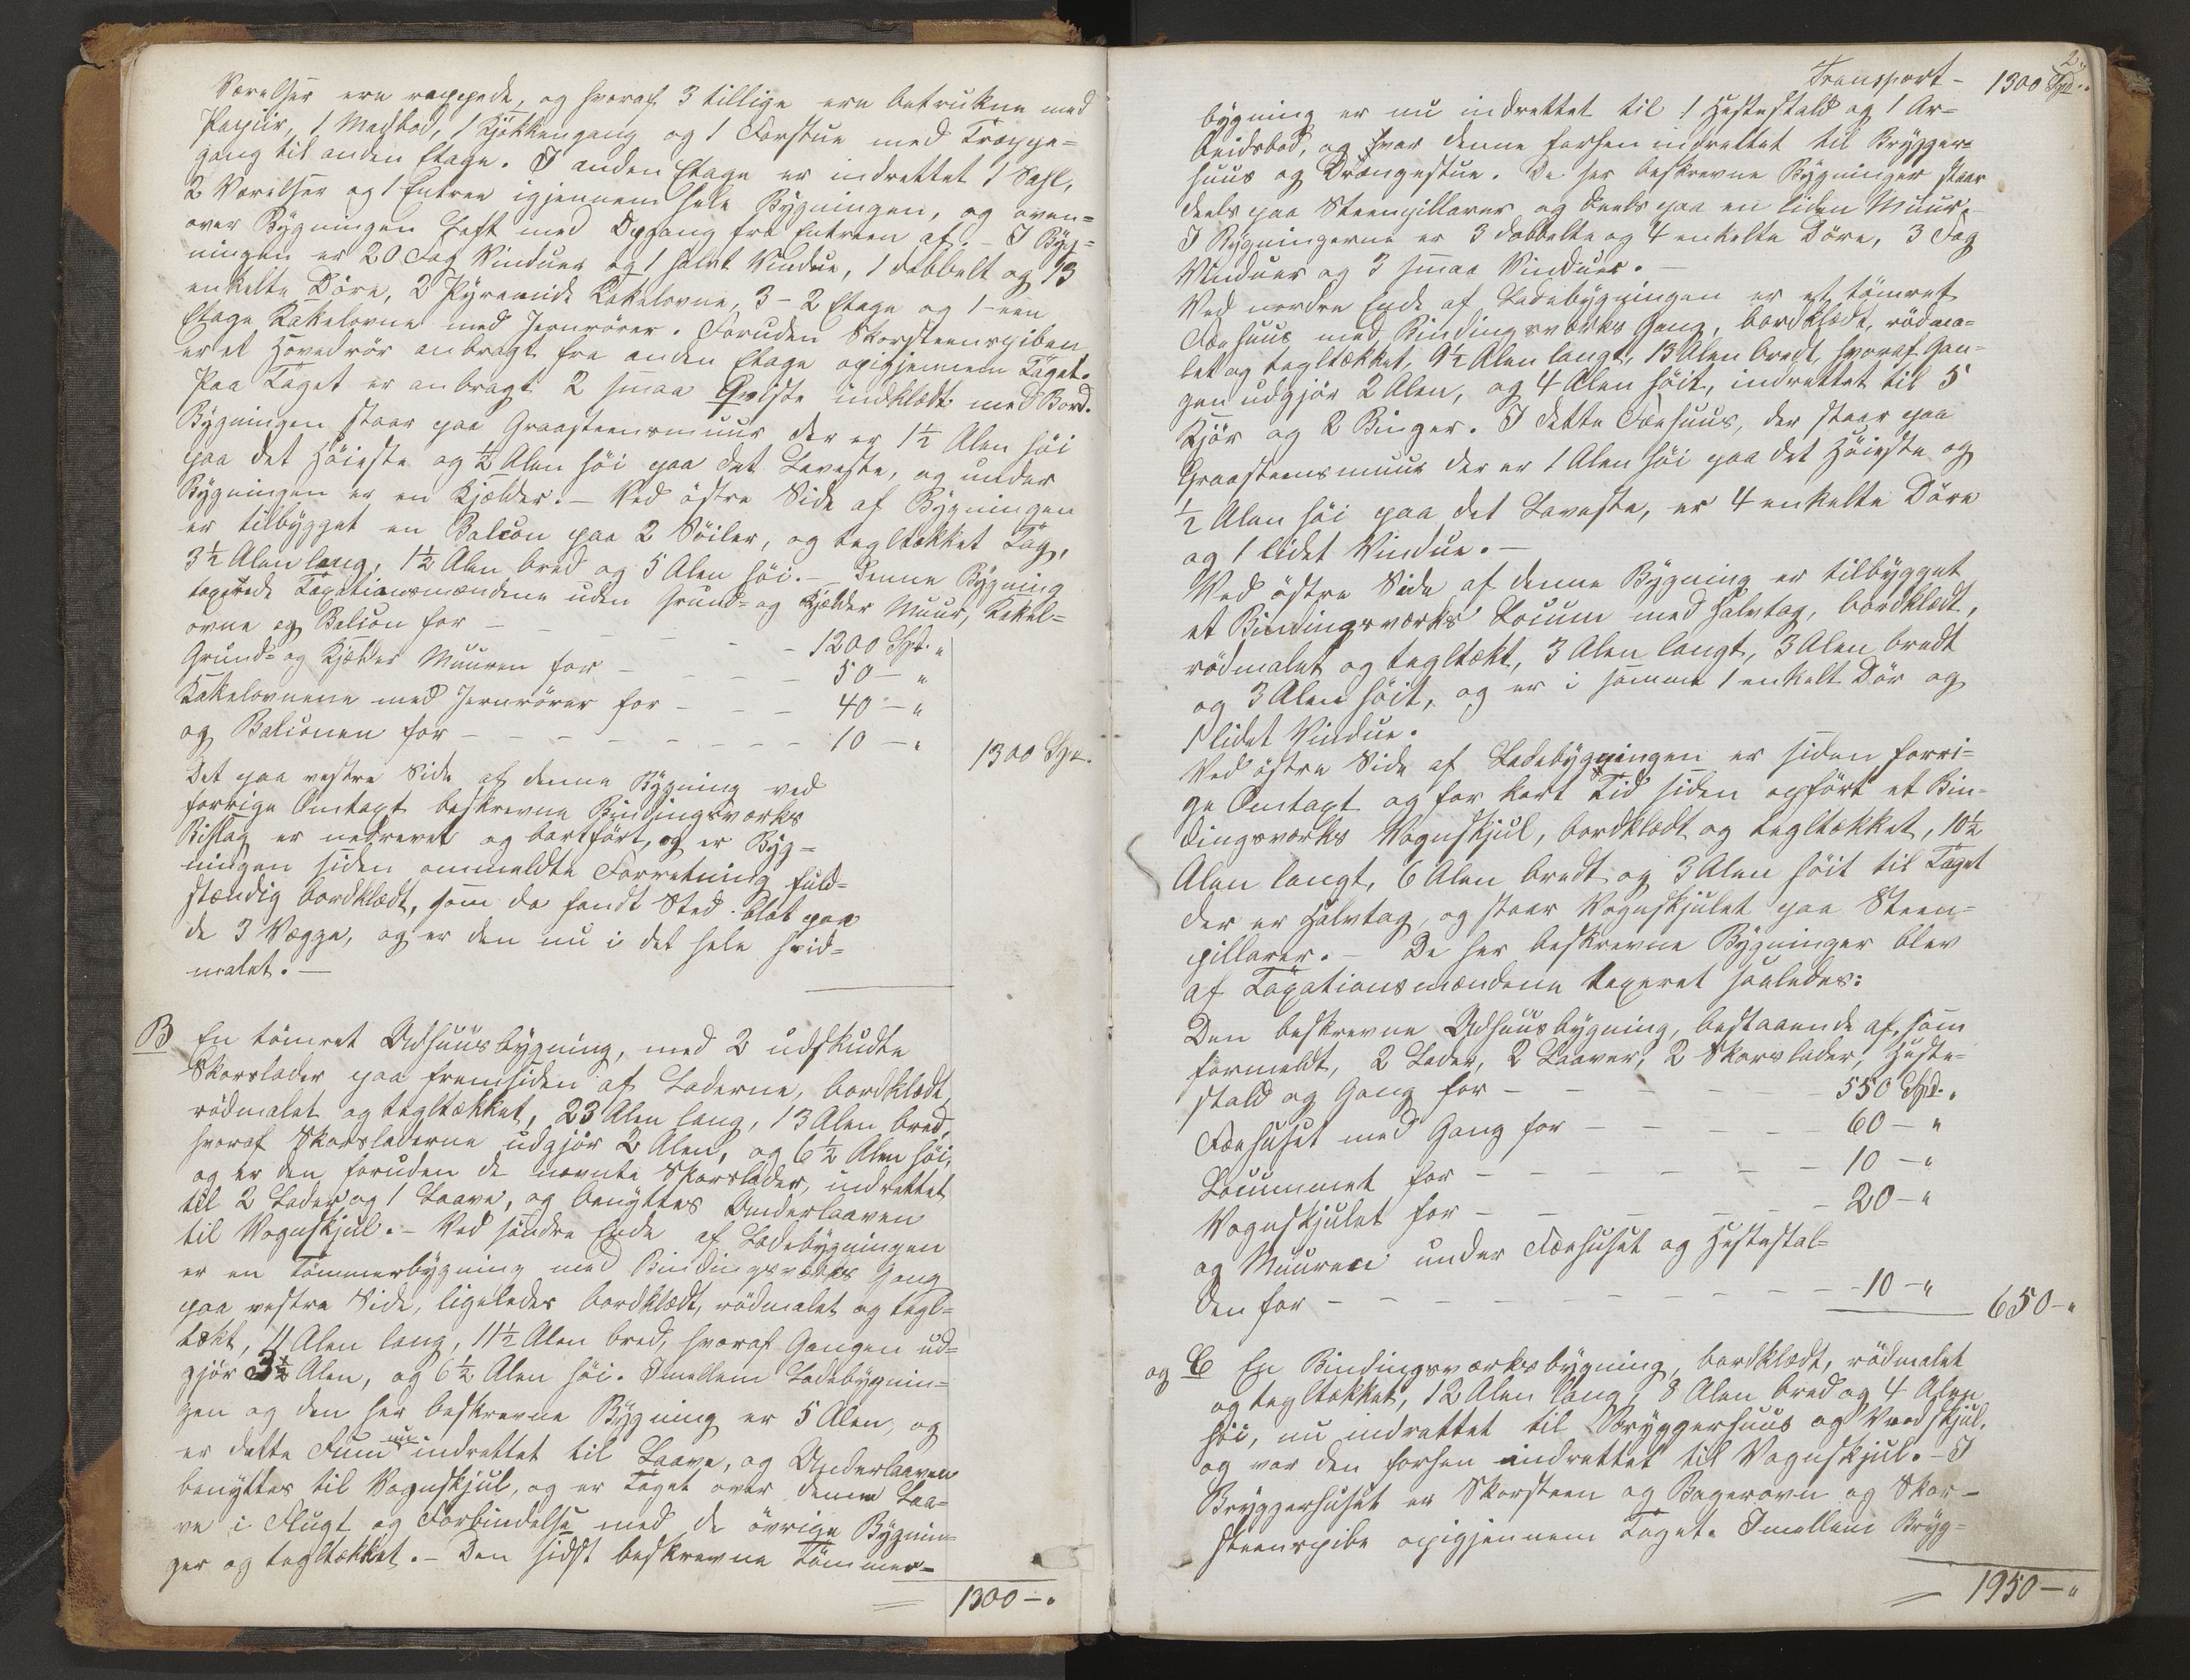 Værelser ere rappede, og hvoraf 3 tillige ere betrukne med
Papiir, 1 Madbod, 1 Kjøkkengang og 1 Forstue med Trappe=
gang til anden Etage. I anden Etage er indrettet 1 Sahl,
2 Værelser og 1 Entree igjennem hele Bygningen, og oven=
over Bygningen Loft med Opgang fra Entreen af. - I Byg=
ningen er 20 Fag Vinduer og 1 halvt Vindue, 1 dobbelt og 13
enkelte Döre, 2 Pyramide Kakelovne, 3 - 2 Etage og 1 - een
Etage Kakelovne med Jernrörer. Foruden Skorsteenspiben
er et Hovedrör anbragt fra anden Etage opigjennem Taget.
Paa Taget er anbragt 2 smaa Qviste indklædt med Bord.
Bygningen staar paa Graasteensmuur der er 1½ Alen höi
paa det Höieste og ½ Alen höi paa det Laveste, og under
Bygningen er en Kjælder. - Ved östre Side af Bygningen
er tilbygget en Balcon paa 2 Söiler, og tegltækket Tag,
3½ Alen lang, 1½ Alen bred og 5 Alen höi. - Denne Bygning
taxerede Taxationsmændene uden Grund= og Kjælder Muur, Kakel=
ovne og Balcon for - - - - 1200 Spd. "
Grund= og Kjælder Muuren for - - - - 50 - "
Kakelovnene med Jernrörer for - - - 40 - "
og Balconen for - - - - - - - - - 10 - " 1300 Spd.
Det paa vestre Side af denne Bygning ved
forrige Omtaxt beskrevne Bindingsværks
Bislag er nedrevet og bortfört, og er Byg=
ningen siden ommeldte Forretning fuld=
stændig bordklædt, som da fandt Sted blot paa
de 3 Vægge, og er den nu i det hele hvid=
malet. -
B En tömret Udhuusbygning, med 2 udskudte
Skorslader paa fremsiden af Laderne, bordklædt,
rödmalet og tegltækket, 23 Alen lang, 13 Alen bred,
hvoraf Skorsladerne udgjör 2 Alen, og 6½ Alen höi,
og er den foruden de nævnte Skorslader, indrettet
til 2 Lader og 1 Laave, og benyttes Underlaaven
til Vognskjul. - Ved söndre Ende af Ladebygningen
er en Tömmerbygning med Bindingsværks Gang
paa vestre Side, ligeledes bordklædt, rödmalet og tegl=
tækt, 11 Alen lang, 11½ Alen bred, hvoraf Gangen ud=
gjör 3½ Alen, og 6½ Alen höi. Imellem Ladebygnin=
gen og den her beskrevne Bygning er 5 Alen, og
er dette Rum nu indrettet til Laave, og Underlaaven
benyttes til Vognskjul, og er Taget over denne Laa=
ve i Flugt og Forbindelse med de övrige Bygnin=
ger og tegltækket. - Den sidst beskrevne Tömmer=
1300 - "
2
Transport - 1300 Spd. "
bygning er nu indrettet til 1 Hestestald og 1 Ar=
beidsbod, og var denne forhen indrettet til Brygger=
huus og Drængestue. De her beskrevne Bygninger staar
deels paa Steenpillarer og deels paa en liden Muur. -
I Bygningerne er 3 dobbelte og 4 enkelte Döre, 3 Fag
Vinduer og 3 smaa Vinduer. -
Ved nordre Ende af Ladebygningen er et tömret
Fæehuus med Bindingsværks Gang, bordklædt, rödma=
let og tegltækket, 9½ Alen langt, 13 Alen bredt, hvoraf Gan=
gen udgjör 2 Alen, og 4 Alen höit, indrettet til 5
Kjör og 2 Binger. I dette Fæehuus, der staar paa
Graasteensmuur der er 1 Alen höi paa det Höieste og
½ Alen höi paa det Laveste, er 4 enkelte Döre
og 1 lidet Vindue. -
Ved östre Side af denne Bygning er tilbygget
et Bindingsværks Locum med Halvtag, bordklædt,
rödmalet og tegltækt, 3 Alen langt, 3 Alen bredt
og 3 Alen höit, og er i samme 1 enkelt Dör og
1 lidet Vindue.
Ved östre Side af Ladebygningen er siden forri=
ge Omtaxt og for kort Tid siden opfört et Bin=
dingsværks Vognskjul, bordklædt og tegltækket, 10½
Alen langt, 6 Alen bredt og 3 Alen höit til Taget
der er Halvtag, og staar Vognskjulet paa Steen=
pillarer. - De her beskrevne Bygninger blev
af Taxationsmændene taxeret saaledes:
Den beskrevne Udhuusbygning, bestaaende af, som
formeldt, 2 Lader, 2 Laaver, 2 Skorslader, Heste=
stald og Gang for - - - - - 550 Spd. "
Fæehuset med Gang for - - - - - 60 - "
Locummet for - - - - - - - 10 - "
Vognskjulet for - - - - - - 20 - "
og Muuren under Fæehuset og Hestestal=
den for - - - - - - - - - - 10 - " 650 - "
og C En Bindingsværksbygning, bordklædt, rödmalet
og tegltækket, 12 Alen lang, 8 Alen bred og 4 Alen
höi, nu indrettet til Bryggerhuus og Veedskjul,
og var den forhen indrettet til Vognskjul. - I
Bryggerhuset er Skorsteen og Bagerovn og Skor=
steenspibe opigjennem Taget. Imellem Bryg=
1950 - "